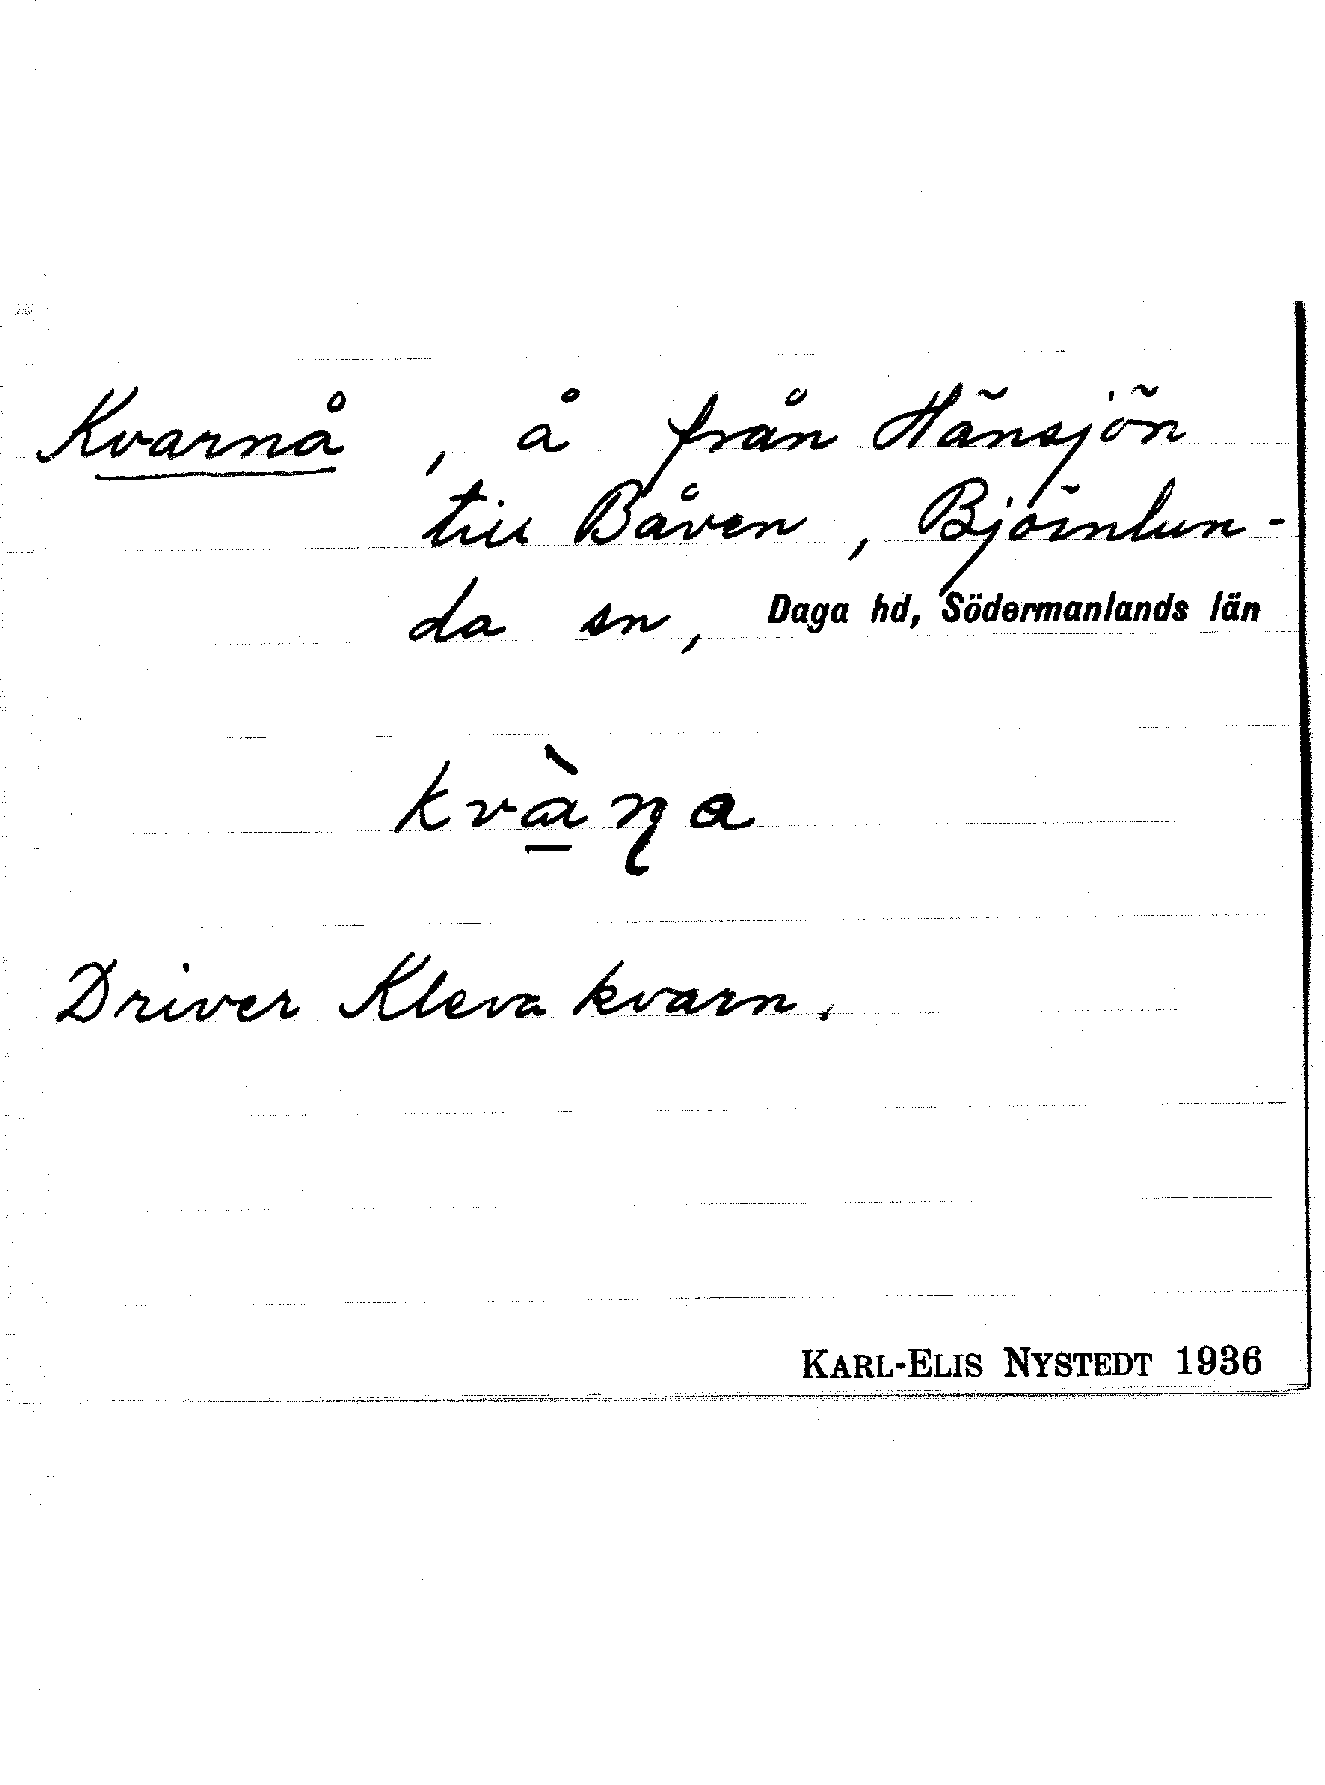 Kvarnå, å från Hänsjön
till Båven, Björnlun-
da sn, Daga hd, Södermanlands län
Driver Kleva kvarn.
KARL-ELIS NYSTEDT 1936